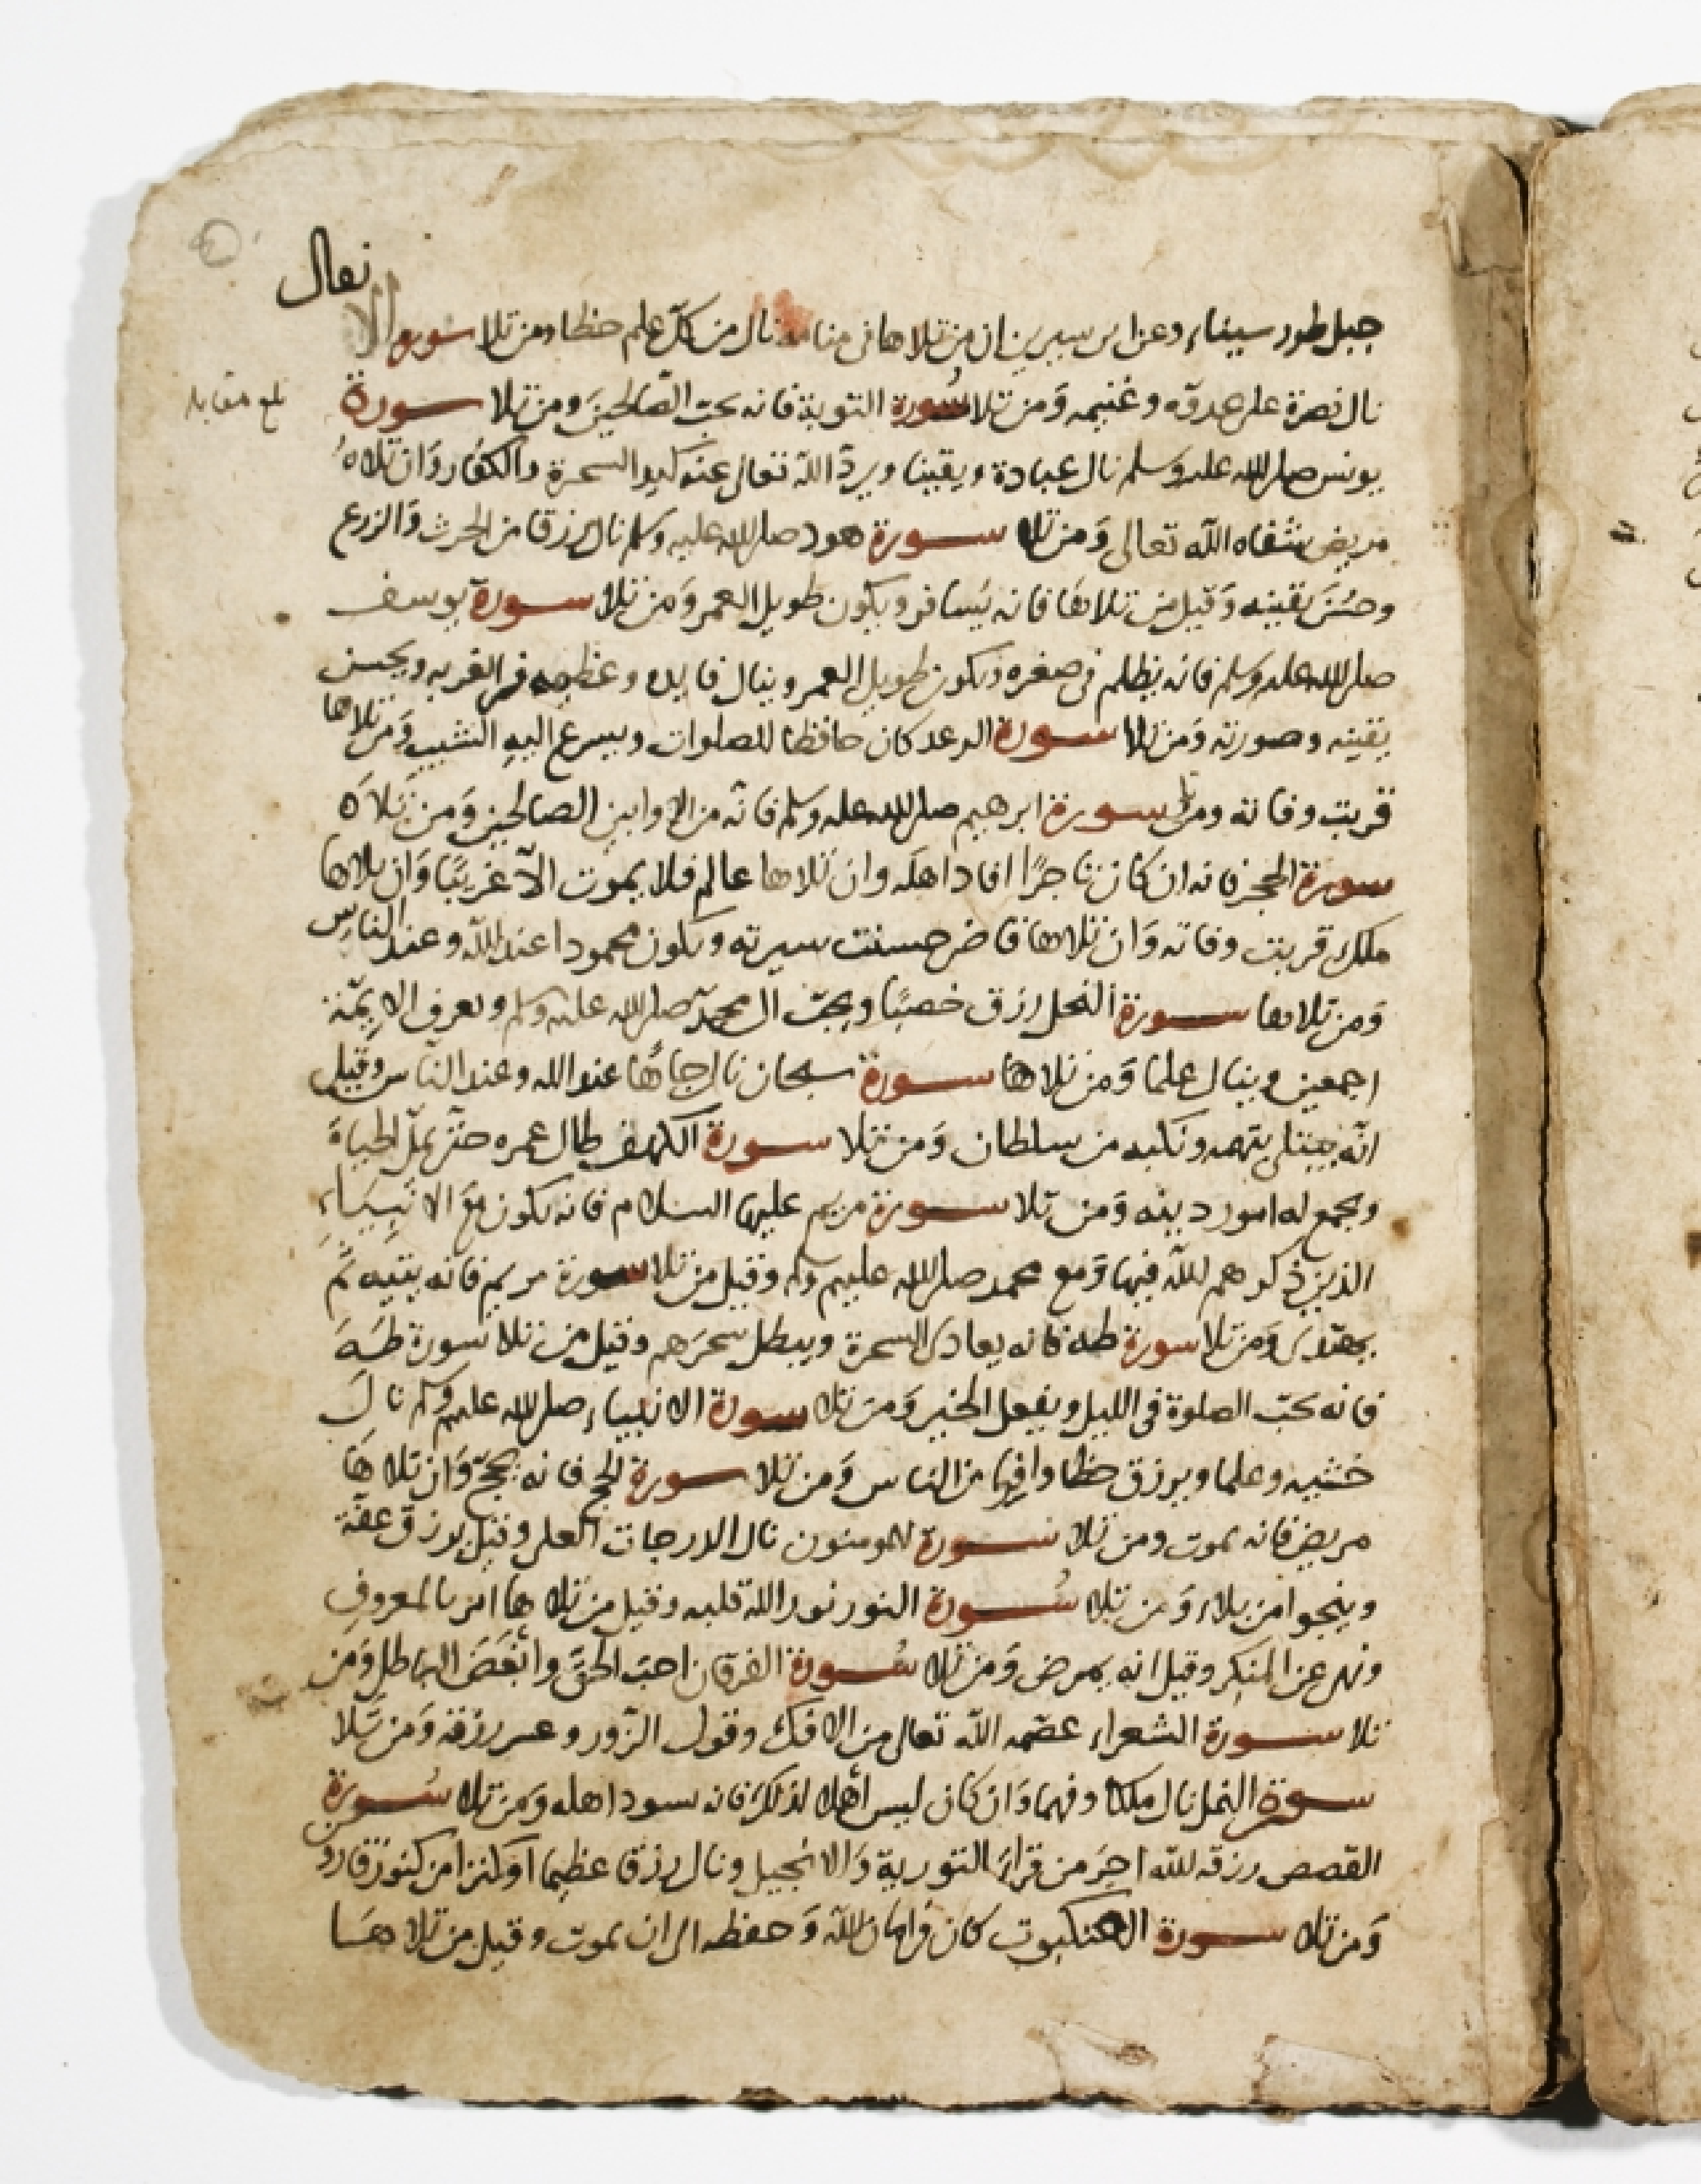 نفال
جبل طور سيناء وعن ابن سيرين ان من تلاها في منامه نال من كل علم حظا ومن تلا سورة الا
نال نصرة على عدوه وغنيمه وَمن تلا سُورة التوبة فانه يحبّ الصّالحينَ ومن تلا سورة
بلغ مقابلة
يونس صلى الله عليه وسلم نال عبادة ويقينا ويردّ الله تعالى عنه كيد السحرة والكفار وَان تلاهُ
مريض شفاه الله تعالى وَمن تلا سورة هود صلى الله عليه وسلم نال رزقا من الحرث وَالزرع
وحسُنَ يقينه وَقيل من تلاها فانه يُسافر ويكون طويل العمر وَمن تلا سورة يوسف
صلى الله عليه وسلم فانه يظلم في صغره ويكون طويل العمر وينال فايده وعظمه في الغربه ويحسن
يقينه وصورته وَمن تلا سورة الرعد كان حافظا للصلوات ويسرع اليه الشيب وَمن تلاها
قربت وفاته ومن تلا سورة ابرهيم صلى الله عليه وسلم فانّه من الاوابين الصالحين وَمن تَلاَه
سورة الحجر فانه ان كان تاجرًا افاد اهله وان تلاها عالم فلا يموت الاّ غريبًا وَان تلاها
ملك قربت وفاته وَان تلاها قاض حسنت سيرته ويكون محمودا عند الله وعند الناس
وَمن تلاها سورة النحل رزق خصبًا ويحبّ ال محمد صلى الله عليه وسلم ويعرف الايمّة
اجمعين وينال علما وَمن تلاها سورة سبحان نال جاهًا عند الله وعند الناس وقيل
انّه يبتلى بتهمه ونكبه من سلطان وَمن تلا سورة الكهف طال عمره حتّى يملّ الحياةَ
ويجمع له امور دينه وَمن تلا سورة مريم عليها السلام فانه يكون مع الانبِيَاءِ
الذين ذكرهم الله فيها وَمع محمد صلى الله عليهم وسلم وقيل من تلا سورة مريم فانه يتيه ثم
يهتدى وَمن تلا سورة طه فانه يعادى السحرة ويبطل سحرَهم وقيل من تلا سورة طَهَ
فانه يحبّ الصلوة في الليل ويفعل الخير وَمن تلا سورة الانبياء صلى الله عليهم وسلم نالَ
خشيه وعلما ويرزق حظا وافرا من الناس وَمن تلا سورة الحج فانه يحجّ وَان تلاهَا
مريض فانه يموت ومن تلا سورة المومنون نال الدرجات العلى وقيل يرزق عفّة
وينجوا من بلاء وَمن تلا سُورة النور نور الله قلبه وقيل من تلاها امر بالمعروف
ونهى عن المنكر وقيل انه يمرض وَمن تلا سُورة الفرقان احبّ الحقّ وابغَضَ الباطل وَمن
تلا سورة الشعراء عصَمه الله تعالى من الافك وقول الزّور وعسر رزقه وَمن تَلا
سورة النمل نال ملكا وفهما وَان كان ليس اهلا لذلك فانه سود اهله وَمن تلا سُورة
القصص رزقه الله اجرَ من قراءَ التورية وَالانجيل ونال رزقا عظيما اوكنزا من كنوز قارون
وَمن تلا سورة العنكبوت كان في امان الله وَحفظه الى ان يموت وقيل من تلاهَا